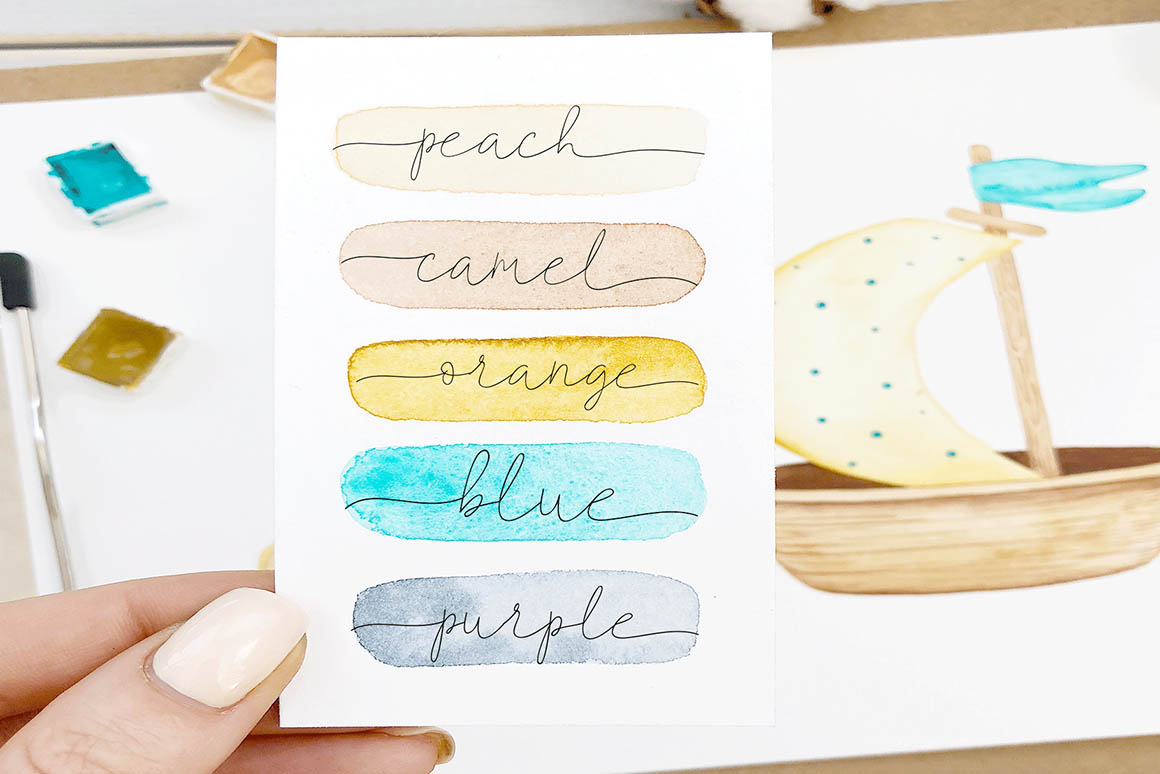 peach
camel
orange
blue
purple